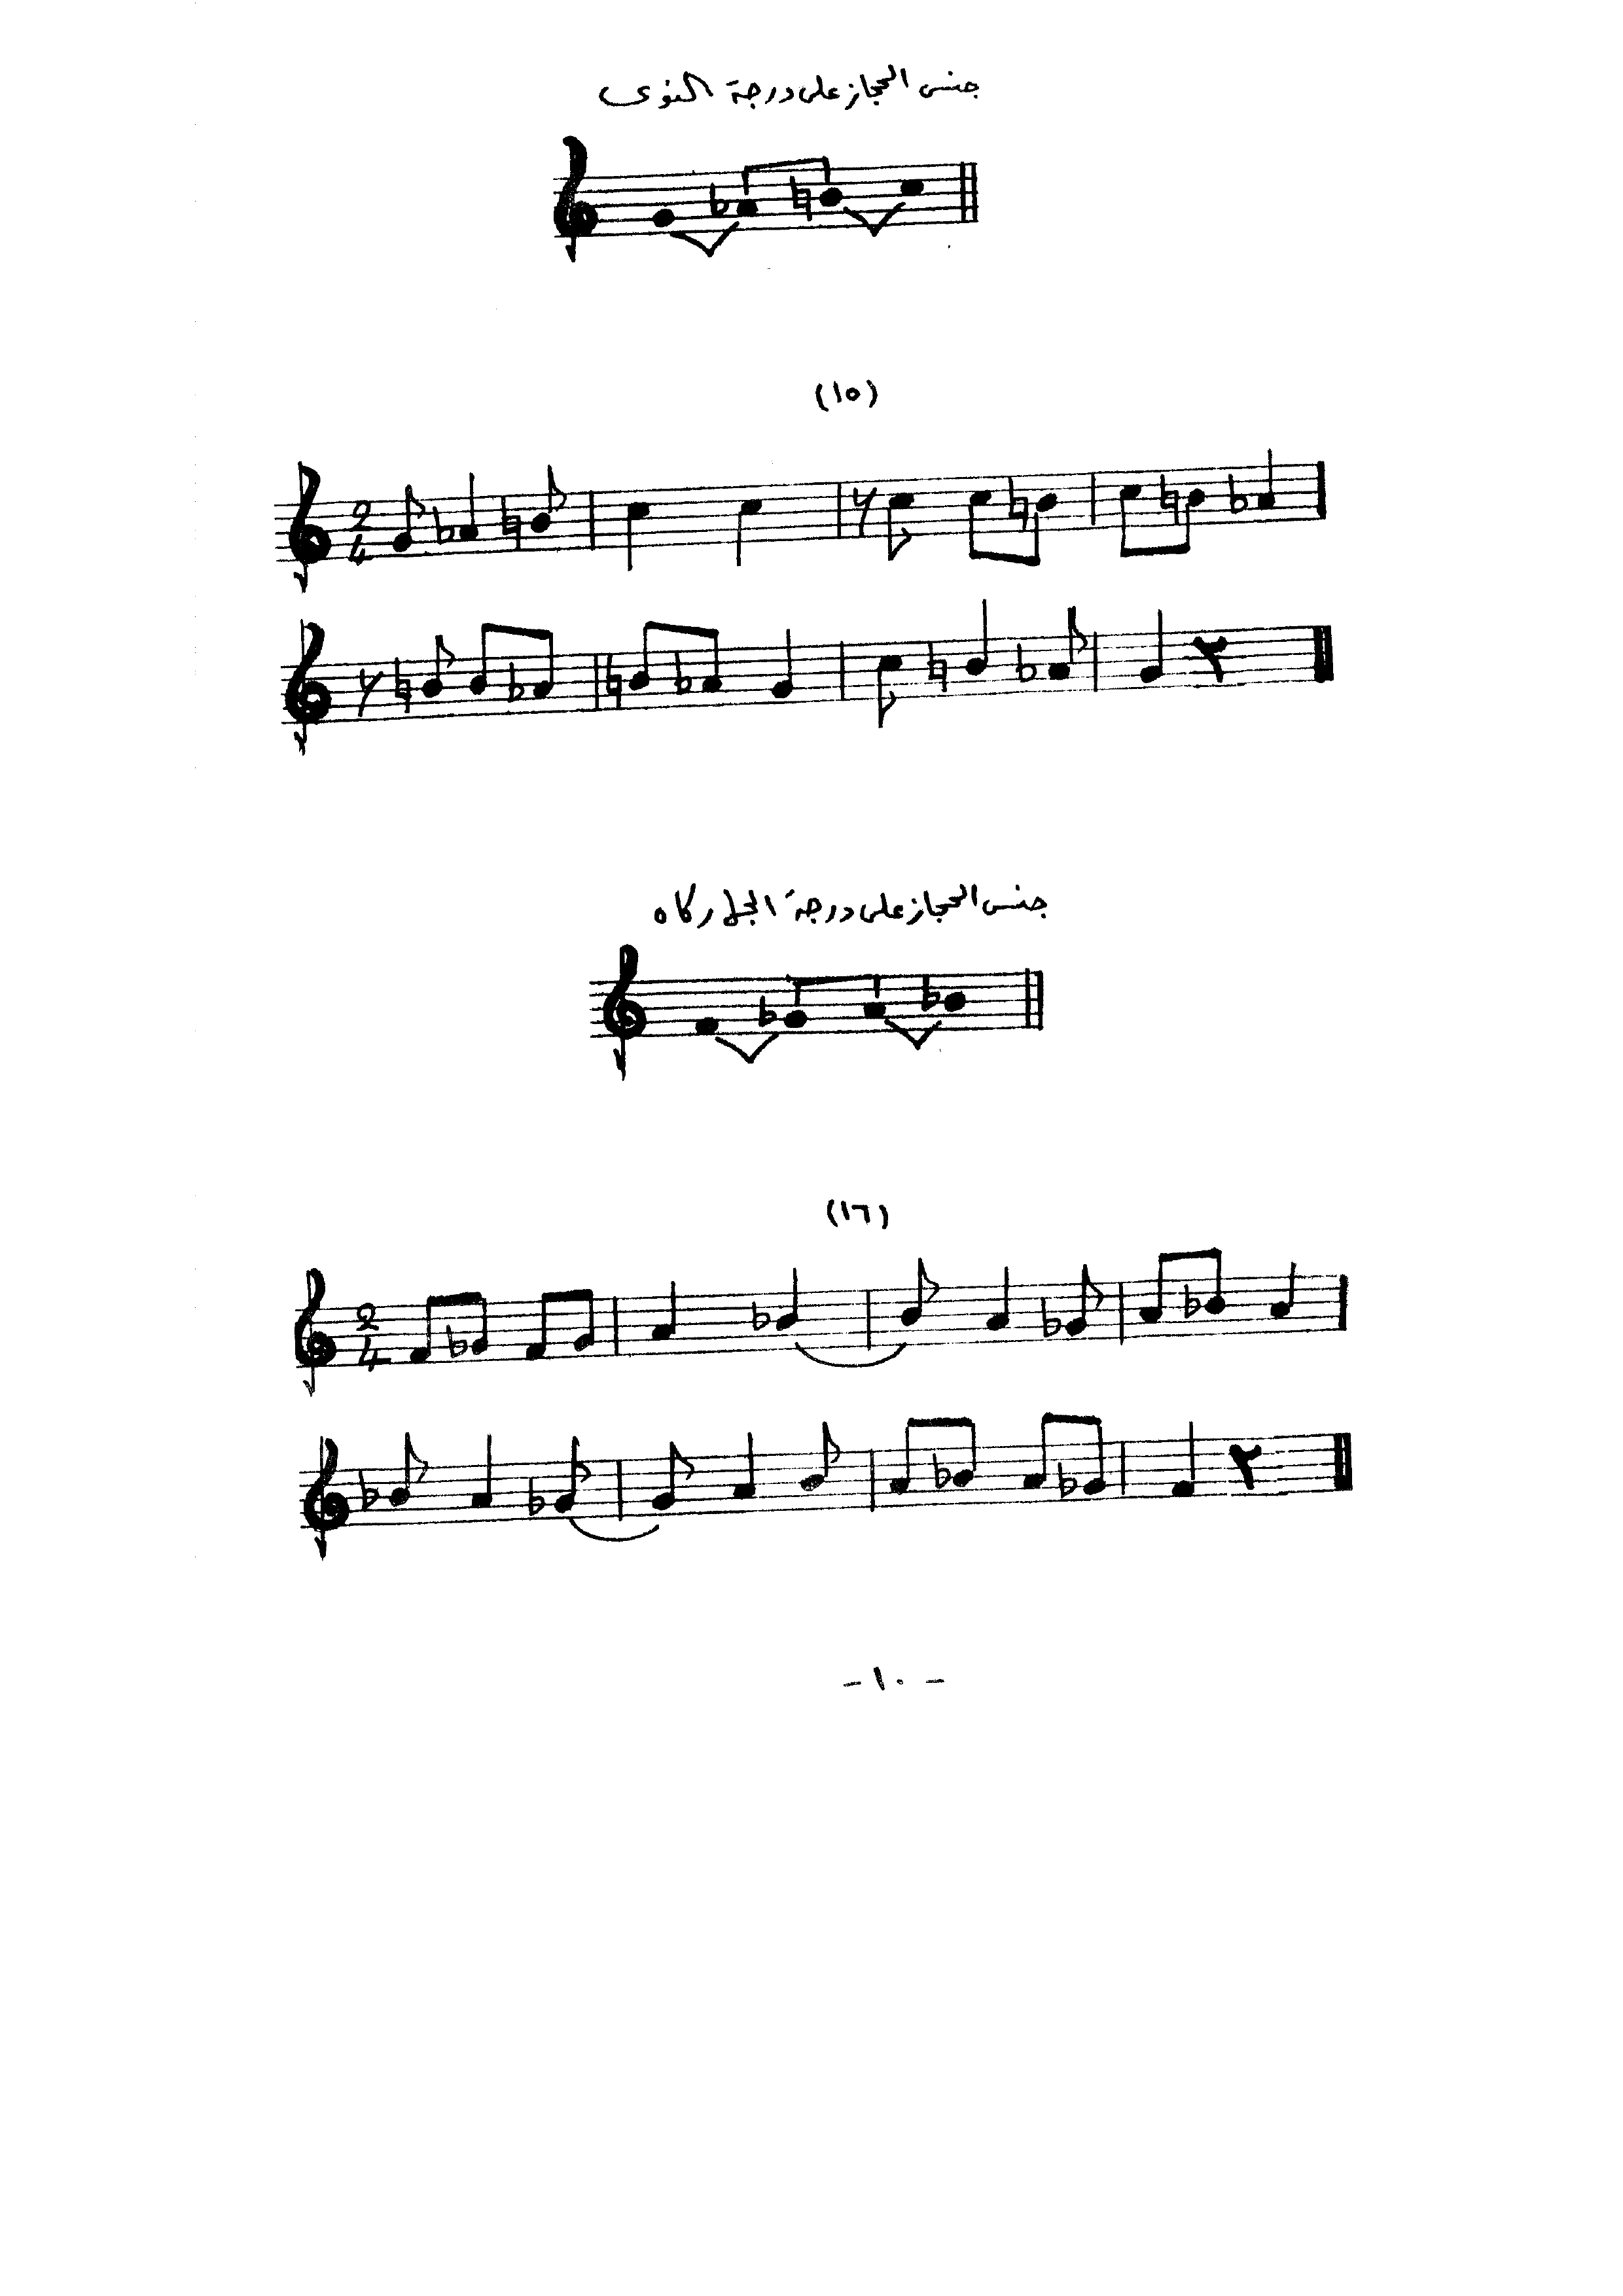 جنس الحجاز على درجة النوى
(١٥)
2
4
جنس الحجاز على درجة الجهاركاه
(١٦)
2
4
- ١٠ -